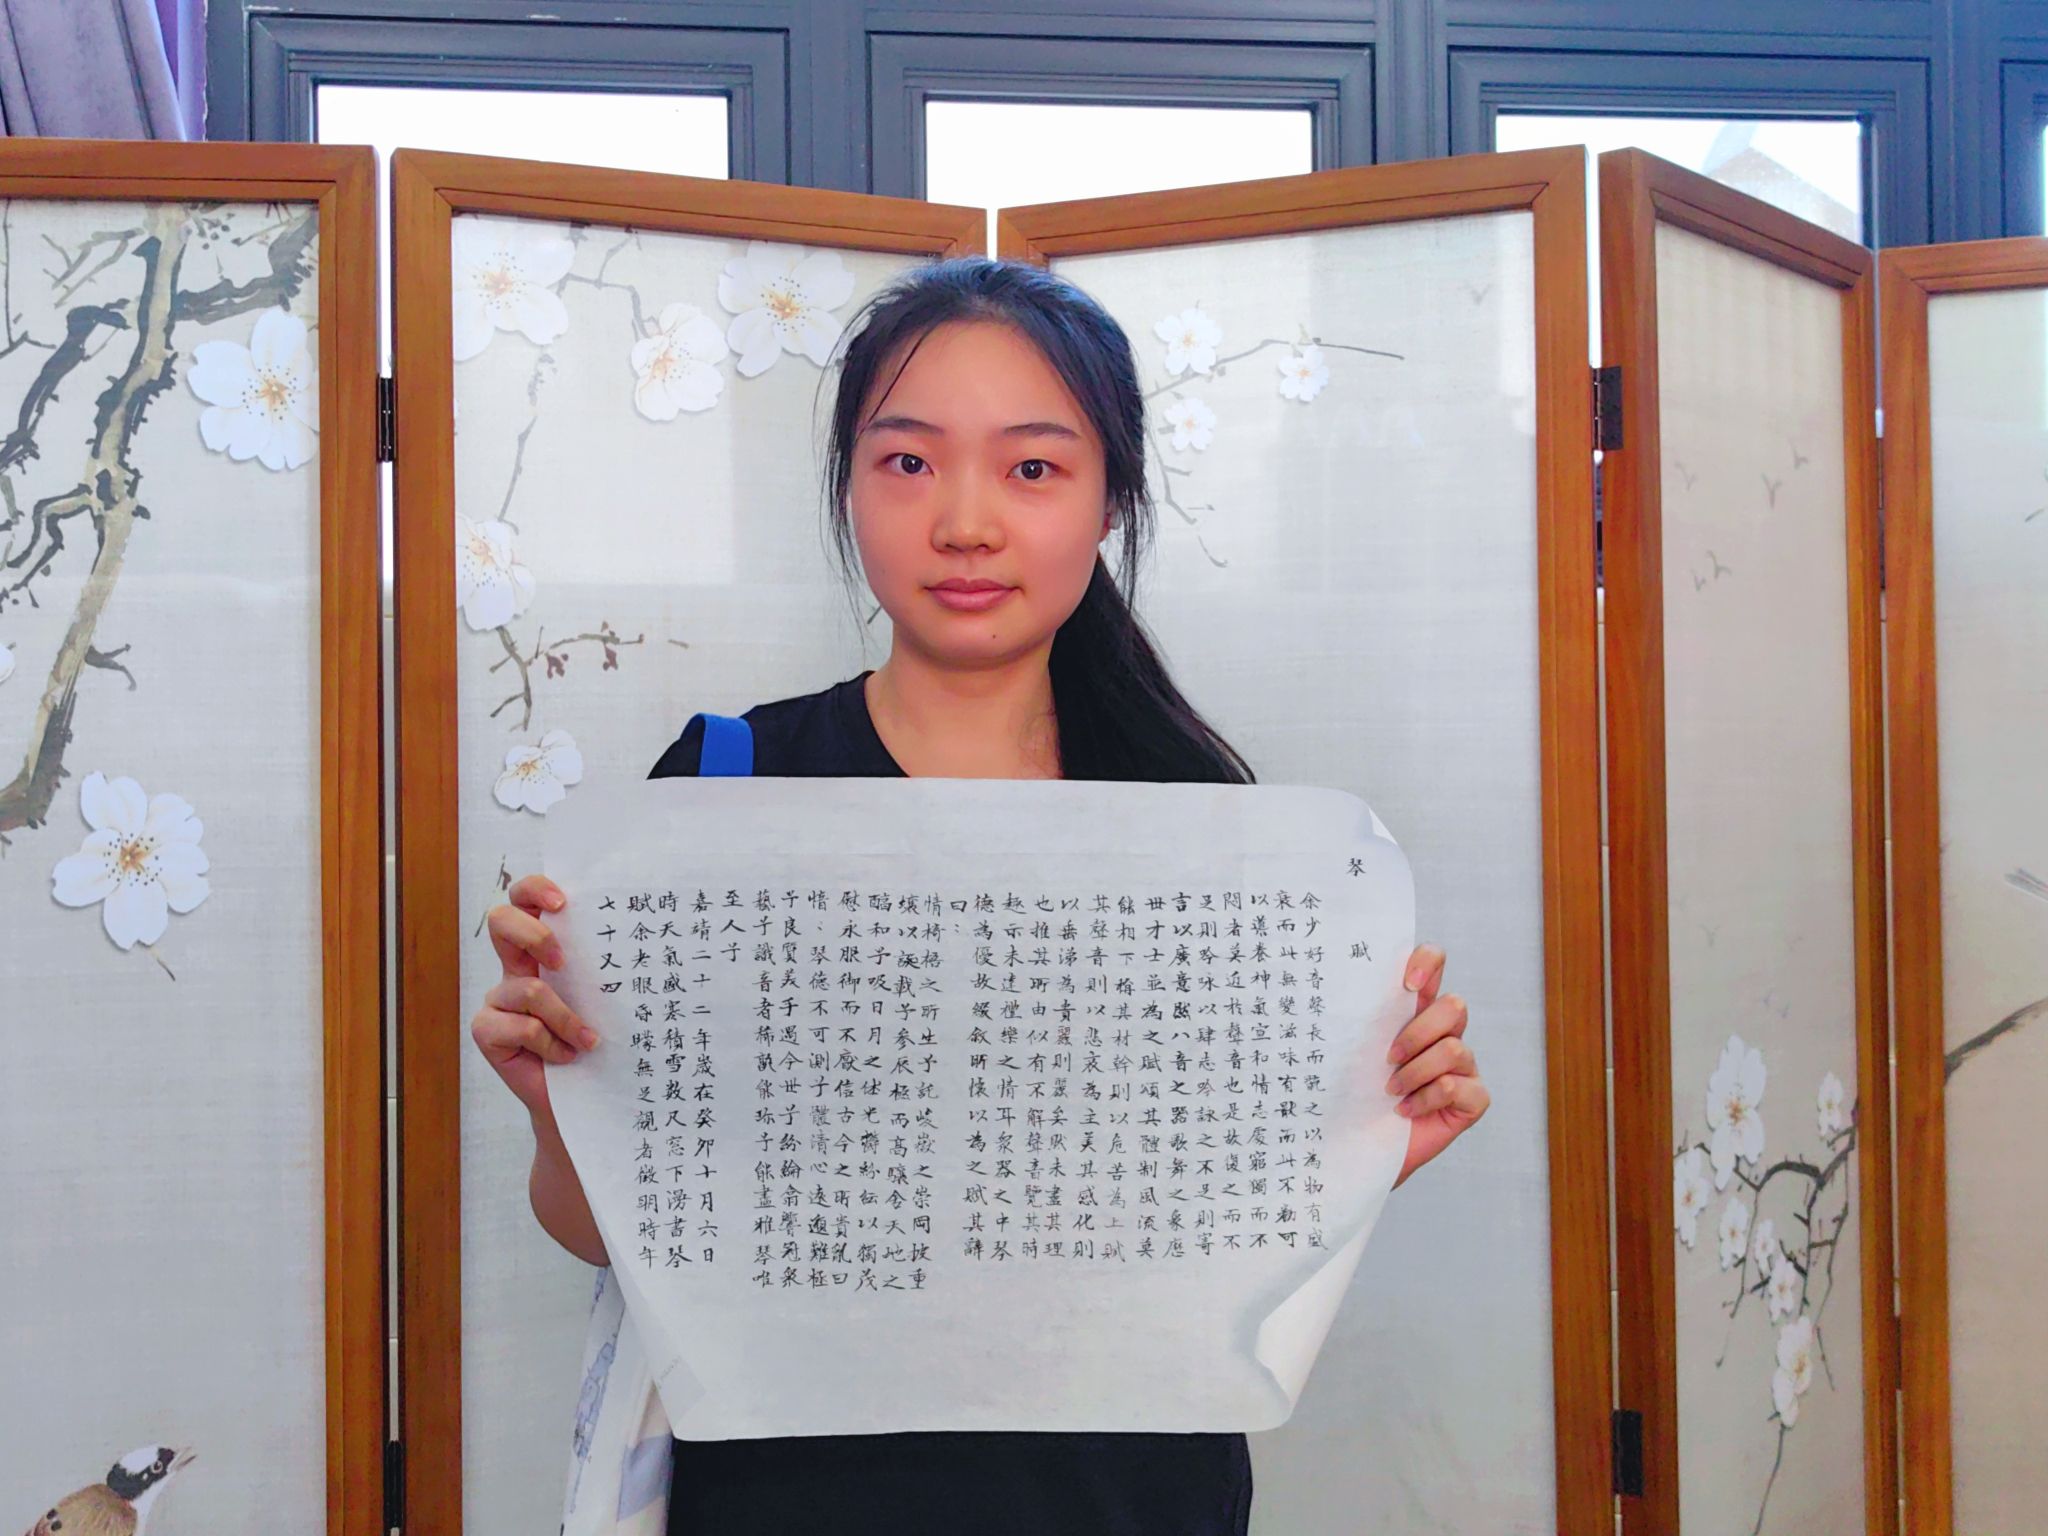 琴賦
余少好音聲長而翫之以為物有盛
衰而此無變滋味有猒而此不勌可
以導養神氣宣和情志處窮獨而不
悶者莫近於聲音也是故復之而不
足則吟咏以肆志吟詠之不足則寄
言以廣意然八音之器歌舞之象歷
世才士並為之賦頌其體制風流莫
能相下稱其材幹則以危苦為上賦
其聲音則以悲哀為主美其感化則
以垂涕為貴麗則麗矣然未盡其理
也推其所由似有不解聲音覽其時
趣示未達禮樂之情耳衆器之中琴
德為優故綴敘所懷以為之賦其辭
曰:
情椅梧之所生兮託峻嶽之崇岡披重
壤以誕載兮參辰極而高驤含天地之
醕和兮吸日月之休光欝紛紜以獨茂
慰永服御而不厭信古今之所貴亂曰
愔〻琴德不可測兮體清心遠邈難極
兮良質美手遇今世兮紛綸翕響冠衆
藝兮識音者稀孰能珍兮能盡雅琴唯
至人兮
嘉靖二十二年歲在癸卯十月六日
時天氣盛寒積雪數尺窓下漫書琴
賦余老眼昏矇無足觀者徵明時年
七十又四